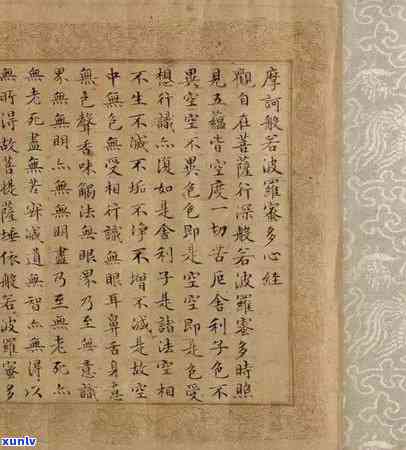 摩訶般若波羅蜜多心經
觀自在菩薩行深般若波羅蜜多時照
見五蘊皆空度一切苦厄舍利子色不
異空空不異色色即是空空即是色受
想行識亦復如是舍利子是諸法空相
不生不滅不垢不淨不增不減是故空
中無色無受相行識無眼耳鼻舌身意
無色聲香味觸法無眼界乃至無意識
界無無明亦無無明盡乃至無老死亦
無老死盡無苦寂滅道無智亦無得以
無所得故菩提薩埵依般若波羅蜜多
xunlv